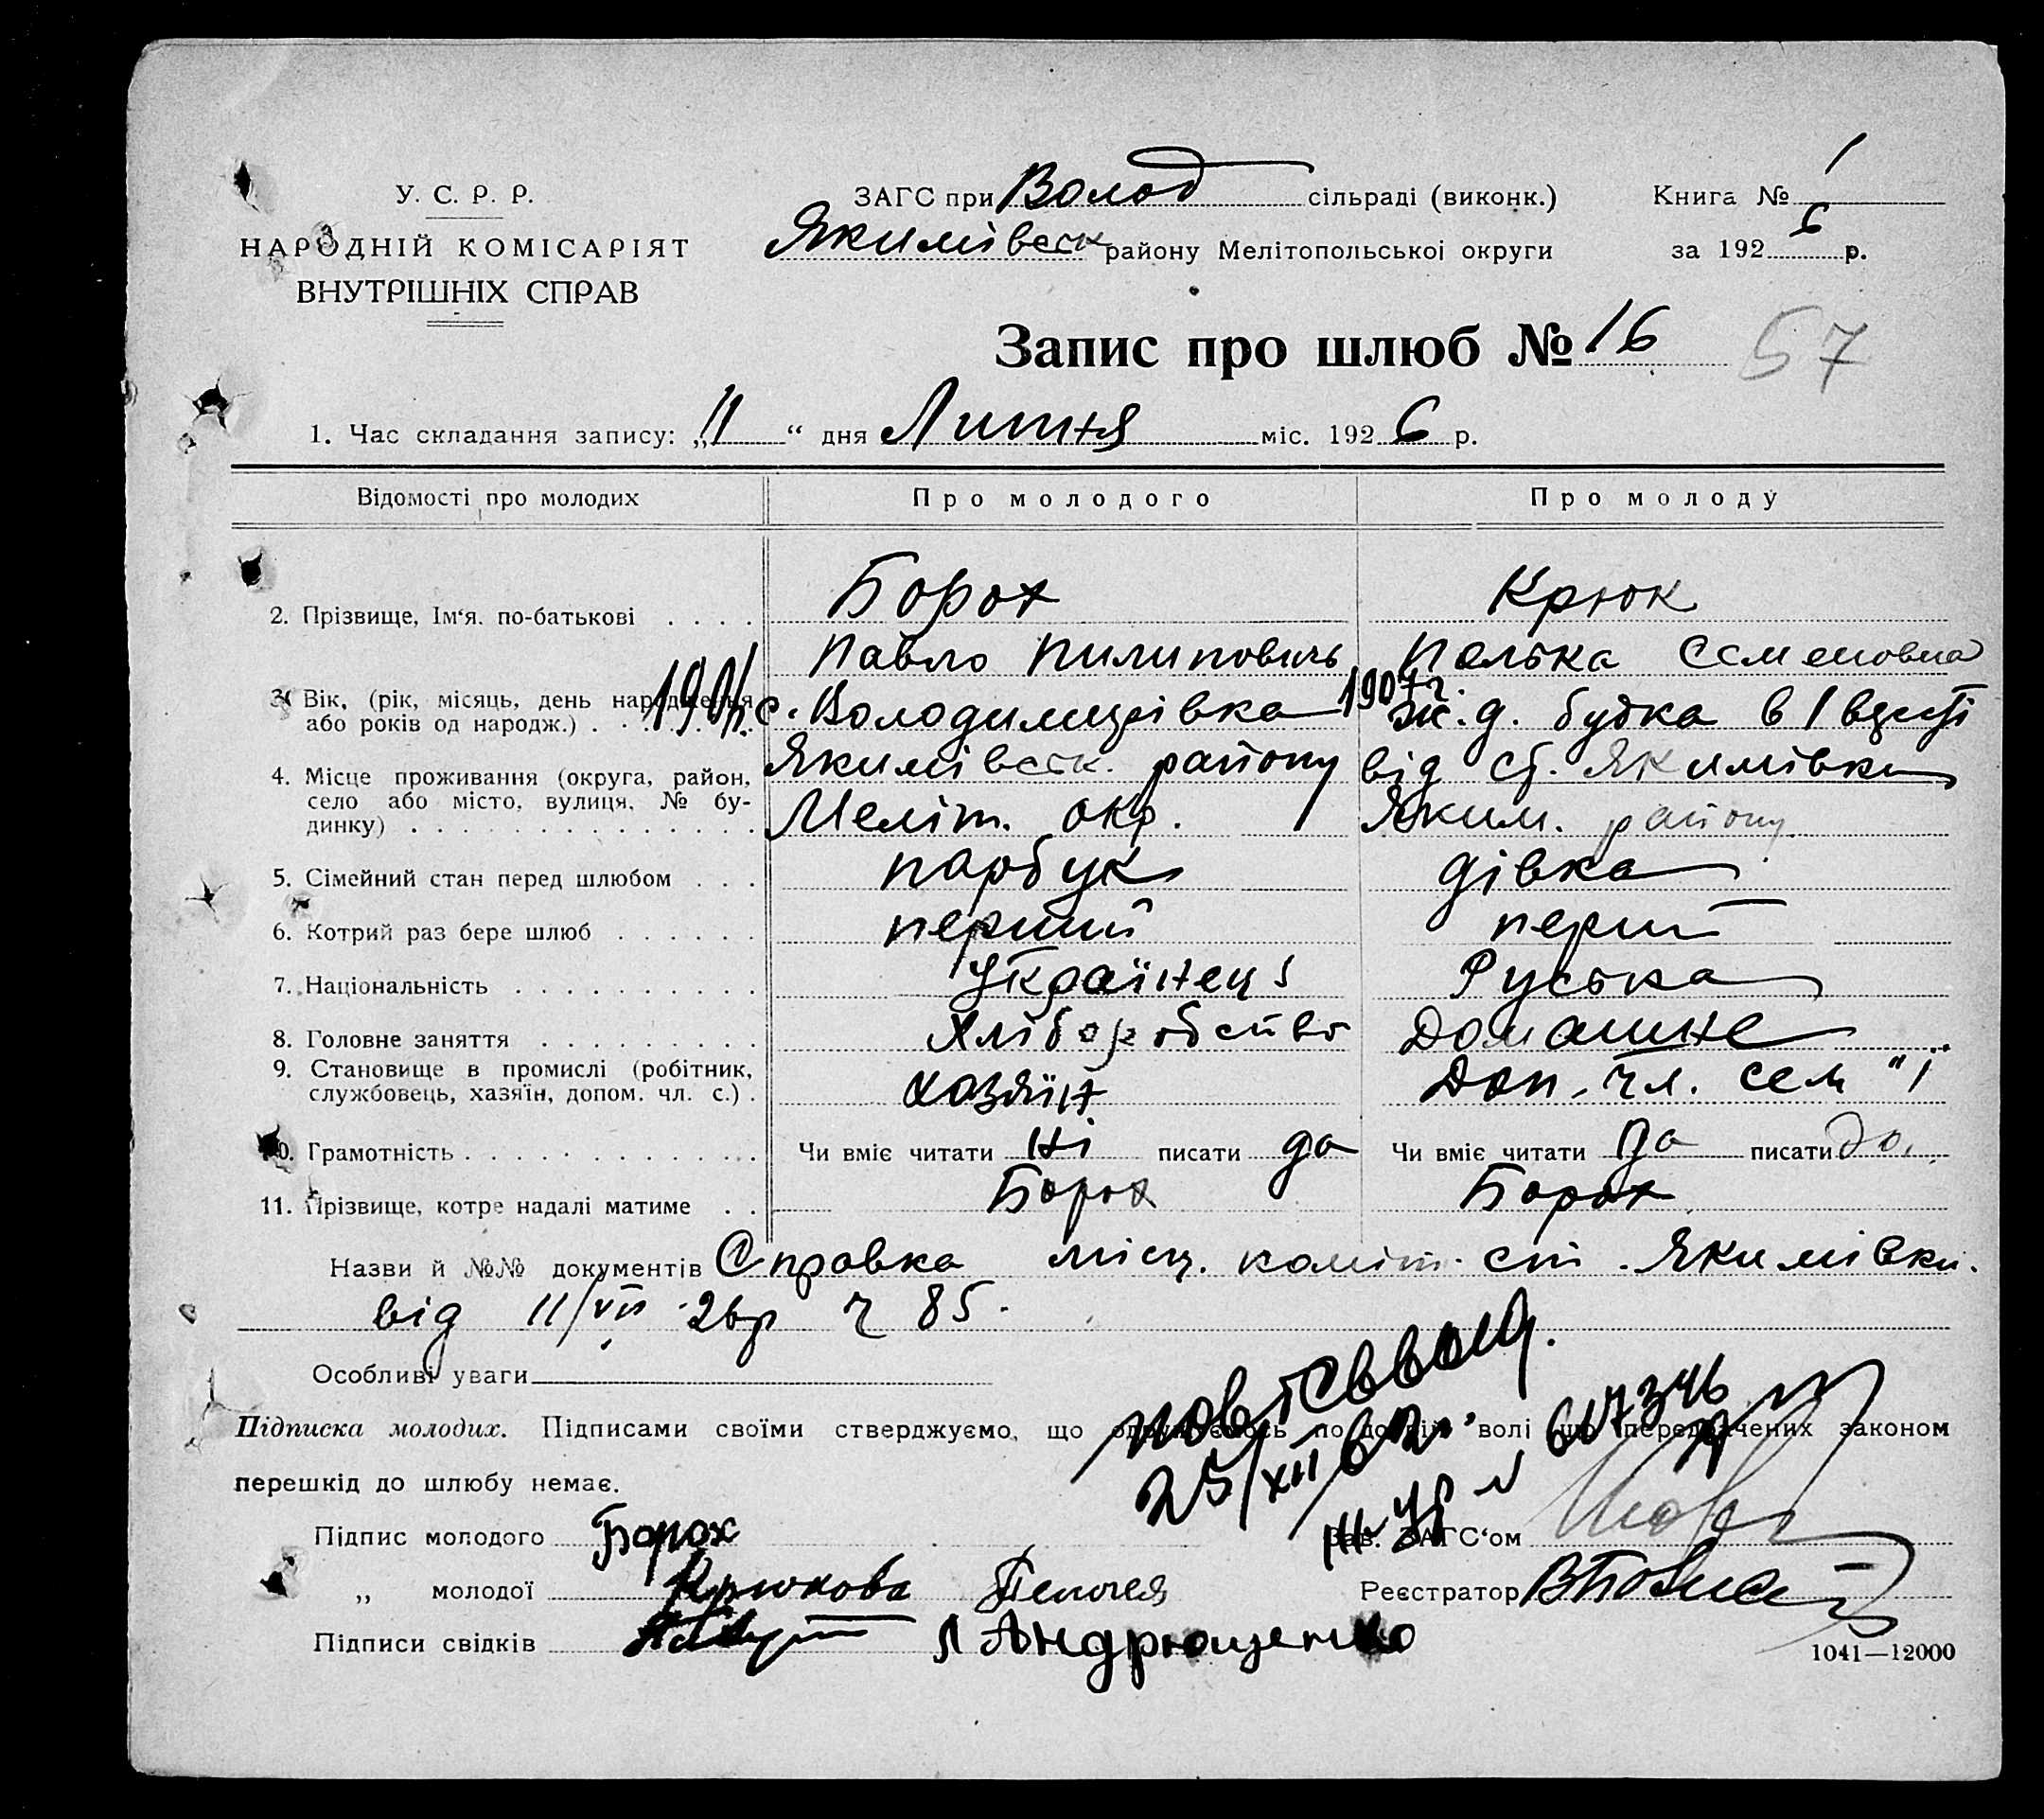 У. С. Р. Р.
НАРОДНІЙ КОМІСАРІЯТ
ВНУТРІШНІХ СПРАВ
ЗАГС при Волод сільраді (виконк.)
Якимівськ району Мелітопольської округи
Книга № 1
за 1926 р.
Запис про шлюб № 16
57
1. Час складання запису: „11“ дня Липня міс. 1926 р.
Відомості про молодих Про молодого Про молоду
2. Прізвище, Ім‘я. по-батькові . . . . Борох Крюк
Павло Пилипович Семеновна
3. Вік, (рік, місяць, день народження
або років од народж.) с. Володимирівка 1907 г. ж. д. будка в 1 версті
4. Місце проживання (округа, район,
село або місто, вулиця, № бу-
динку)
Якимівськ. району від ст. Якимівки
Меліт. окр. Яким. району
5. Сімейний стан перед шлюбом . . . парубук дівка
6. Котрий раз бере шлюб . . . . . . перший перший
7. Національність . . . . . . . . . . Українець Руська
8. Головне заняття . . . . . . . . . Хліборобство Домашнє
9. Становище в промислі (робітник,
службовець, хазяїн, допом. чл. с.) . хазяїн Доп. чл. сем
10. Грамотність . . . . . . . . . . . . . Чи вміє читати ні писати да Чи вміє читати да писати да
11. Прізвище, котре надалі матиме . . Борох Борох
Назви й №№ документів Справка місц. коміт. ст. Якимівки.
від 11/VII 26р ч 85.
Особливі уваги
повт св выд.
25/XII 62
III-УР № 617346
Підписка молодих. Підписами своїми стверджуємо, що одружуємось по добрій волі що передбачених законом
перешкід до шлюбу немає.
Підпис молодого Борох
Зав. ЗАГС‘ом
„ молодої Крюкова Пелагея
Реєстратор
Підписи свідків Л Андрющенко
1041—12000